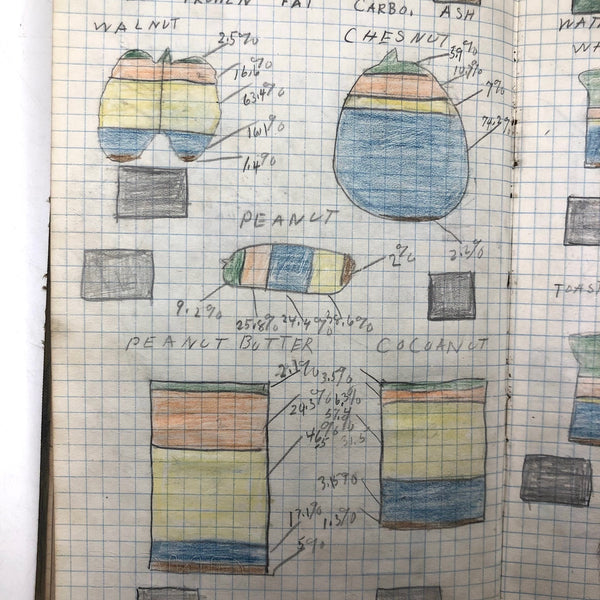 FAT CARBO. ASH
WALNUT
2.5%
16.6%
63.4%
16.1%
1.4%
CHESNUT
5.9%
10.7%
7%
74.2%
2.2%
PEANUT
2%
9.2%
25.8% 24.4% 38.6%
PEANUT BUTTER
2.1%
24.3%
46%
17.1%
5%
COCOANUT
3.5%
6.3%
57.4
31.5
1.3%
WAT
WH
TOAS